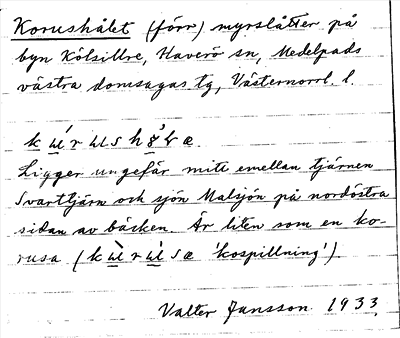 Korushålet (förr) myrslåtter på
byn Kölsillre, Haverö sn, Medelpads
västra domsagas tg, Västernorrl. l.
Ligger ungefär mitt emellan tjärnen
Svarttjärn och sjön Malsjön på nordöstra
sidan av bäcken. Är liten som en ko-
rusa ( 'kospillning').
Valter Jansson 1933.